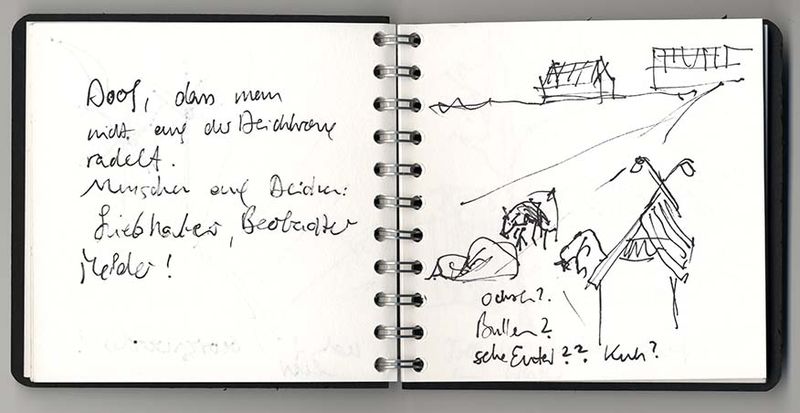 Doof, dass man
nicht auf der Deichkrone
radelt.
Menschen auf Deichen:
Liebhaber, Beobachter
Melder!
Ochsen?
Bullen?
sehe Euter?? Kuh?